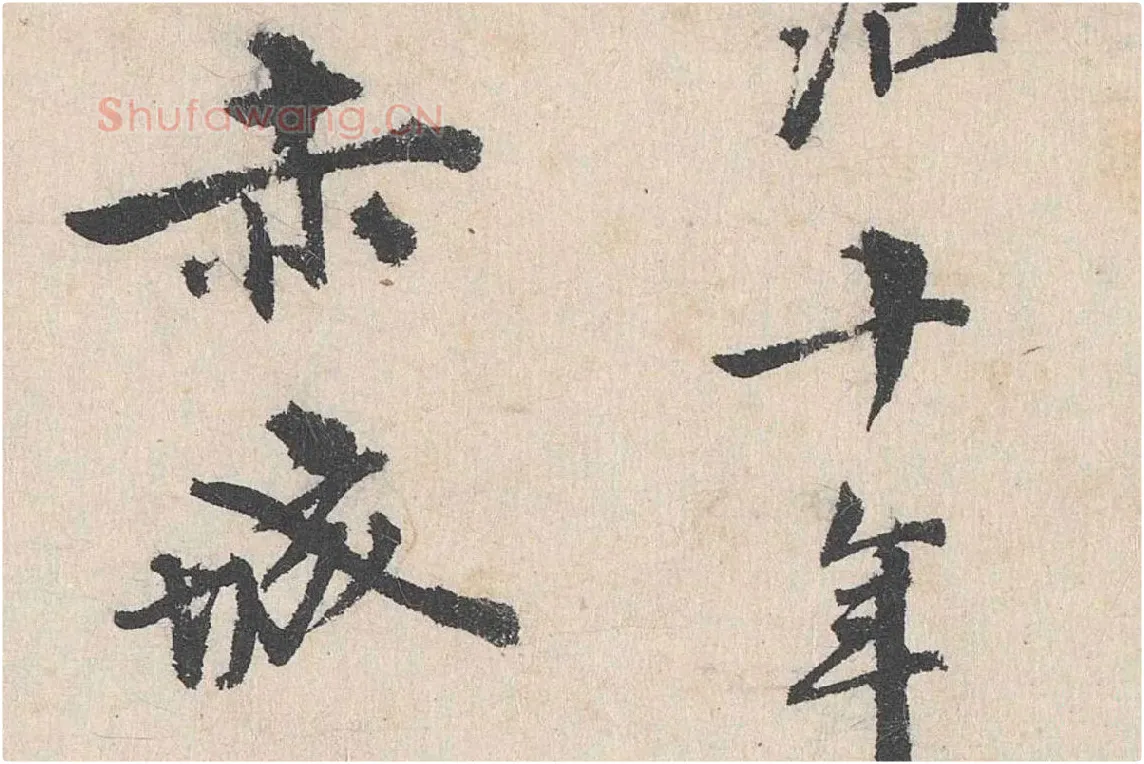 治十年
赤城
Shufawang.CN